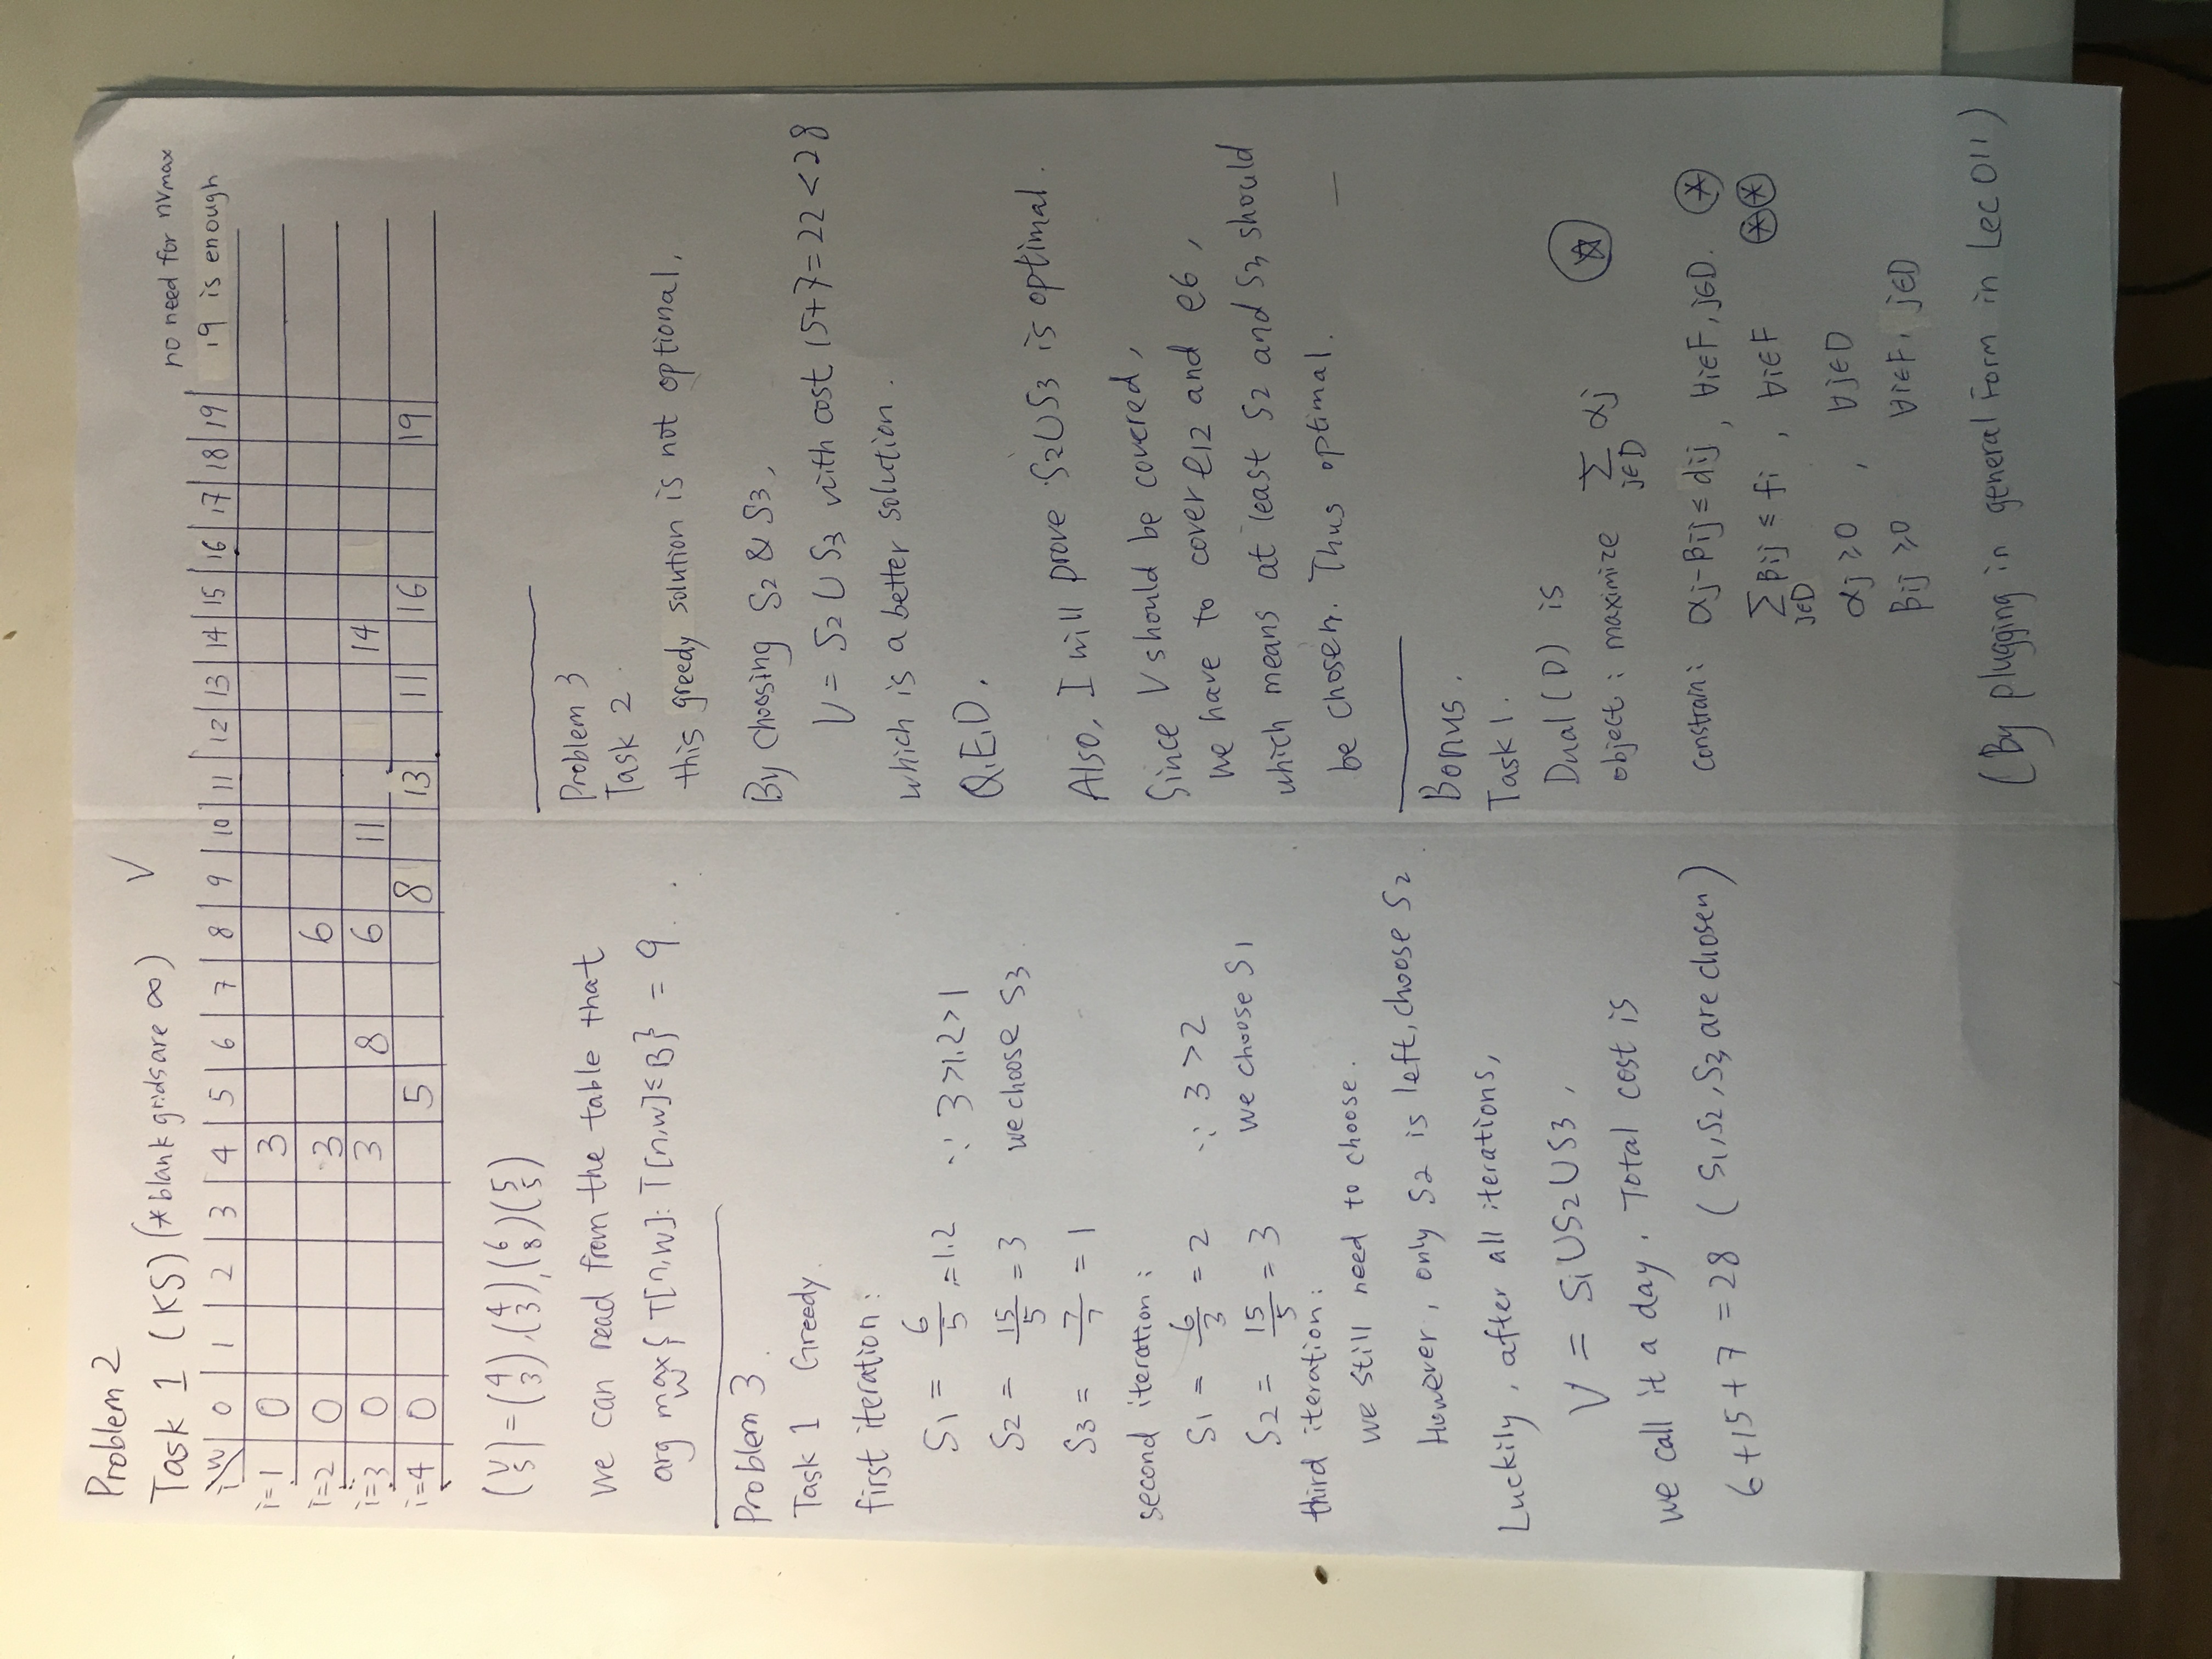 Problem 2
Task 1 (KS) (*blank grids are ∞) V
no need for nVmax
i\w 0 1 2 3 4 5 6 7 8 9 10 11 12 13 14 15 16 17 18 19 19 is enough
i=1 0 3
i=2 0 3 6
i=3 0 3 8 6 11 14
i=4 0 5 8 13 11 16 19
(V S) = (4 3), (4 3), (6 8) (5 5)
we can read from the table that
arg max w { T[n,w]: T[n,w] ≤ B } = 9.
Problem 3.
Task 1 Greedy.
first iteration:
S1 = 6/5 = 1.2 ∵ 3>1.2>1
S2 = 15/5 = 3 we choose S3.
S3 = 7/7 = 1
second iteration:
S1 = 6/3 = 2 ∵ 3 > 2
S2 = 15/5 = 3 we choose S1
third iteration:
we still need to choose.
However, only S2 is left, choose S2
Luckily, after all iterations,
V = S1 ∪ S2 ∪ S3,
we call it a day. Total cost is
6+15+7 = 28 (S1, S2, S3 are chosen)
Problem 3
Task 2.
this greedy solution is not optional.
By choosing S2 & S3,
V = S2 ∪ S3 with cost 15+7=22<28
which is a better solution.
Q.E.D.
Also, I will prove S2∪S3 is optimal.
Since V should be covered,
we have to cover e12 and e6,
which means at least S2 and S3 should
be chosen. Thus optimal. —
Bonus.
Task 1.
Dual (D) is
object: maximize ∑ j∈D αj ☆
constrain: αj - βij ≤ dij, ∀i∈F, j∈D. *
∑ j∈D βij ≤ fi, ∀i∈F **
αj ≥ 0, ∀j∈D
βij ≥ 0 ∀i∈F, j∈D
(By plugging in general Form in Lec 011)